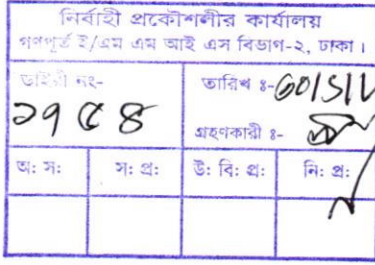 নির্বাহী প্রকৌশলীর কার্যালয়
গণপূর্ত ই/এম এম আই এস বিভাগ-২, ঢাকা।
ডাইরী নং- তারিখ ঃ-
১৭৫৪ গ্রহণকারী ঃ-
অ: স: স: প্র: উ: বি: প্র: নি: প্র: